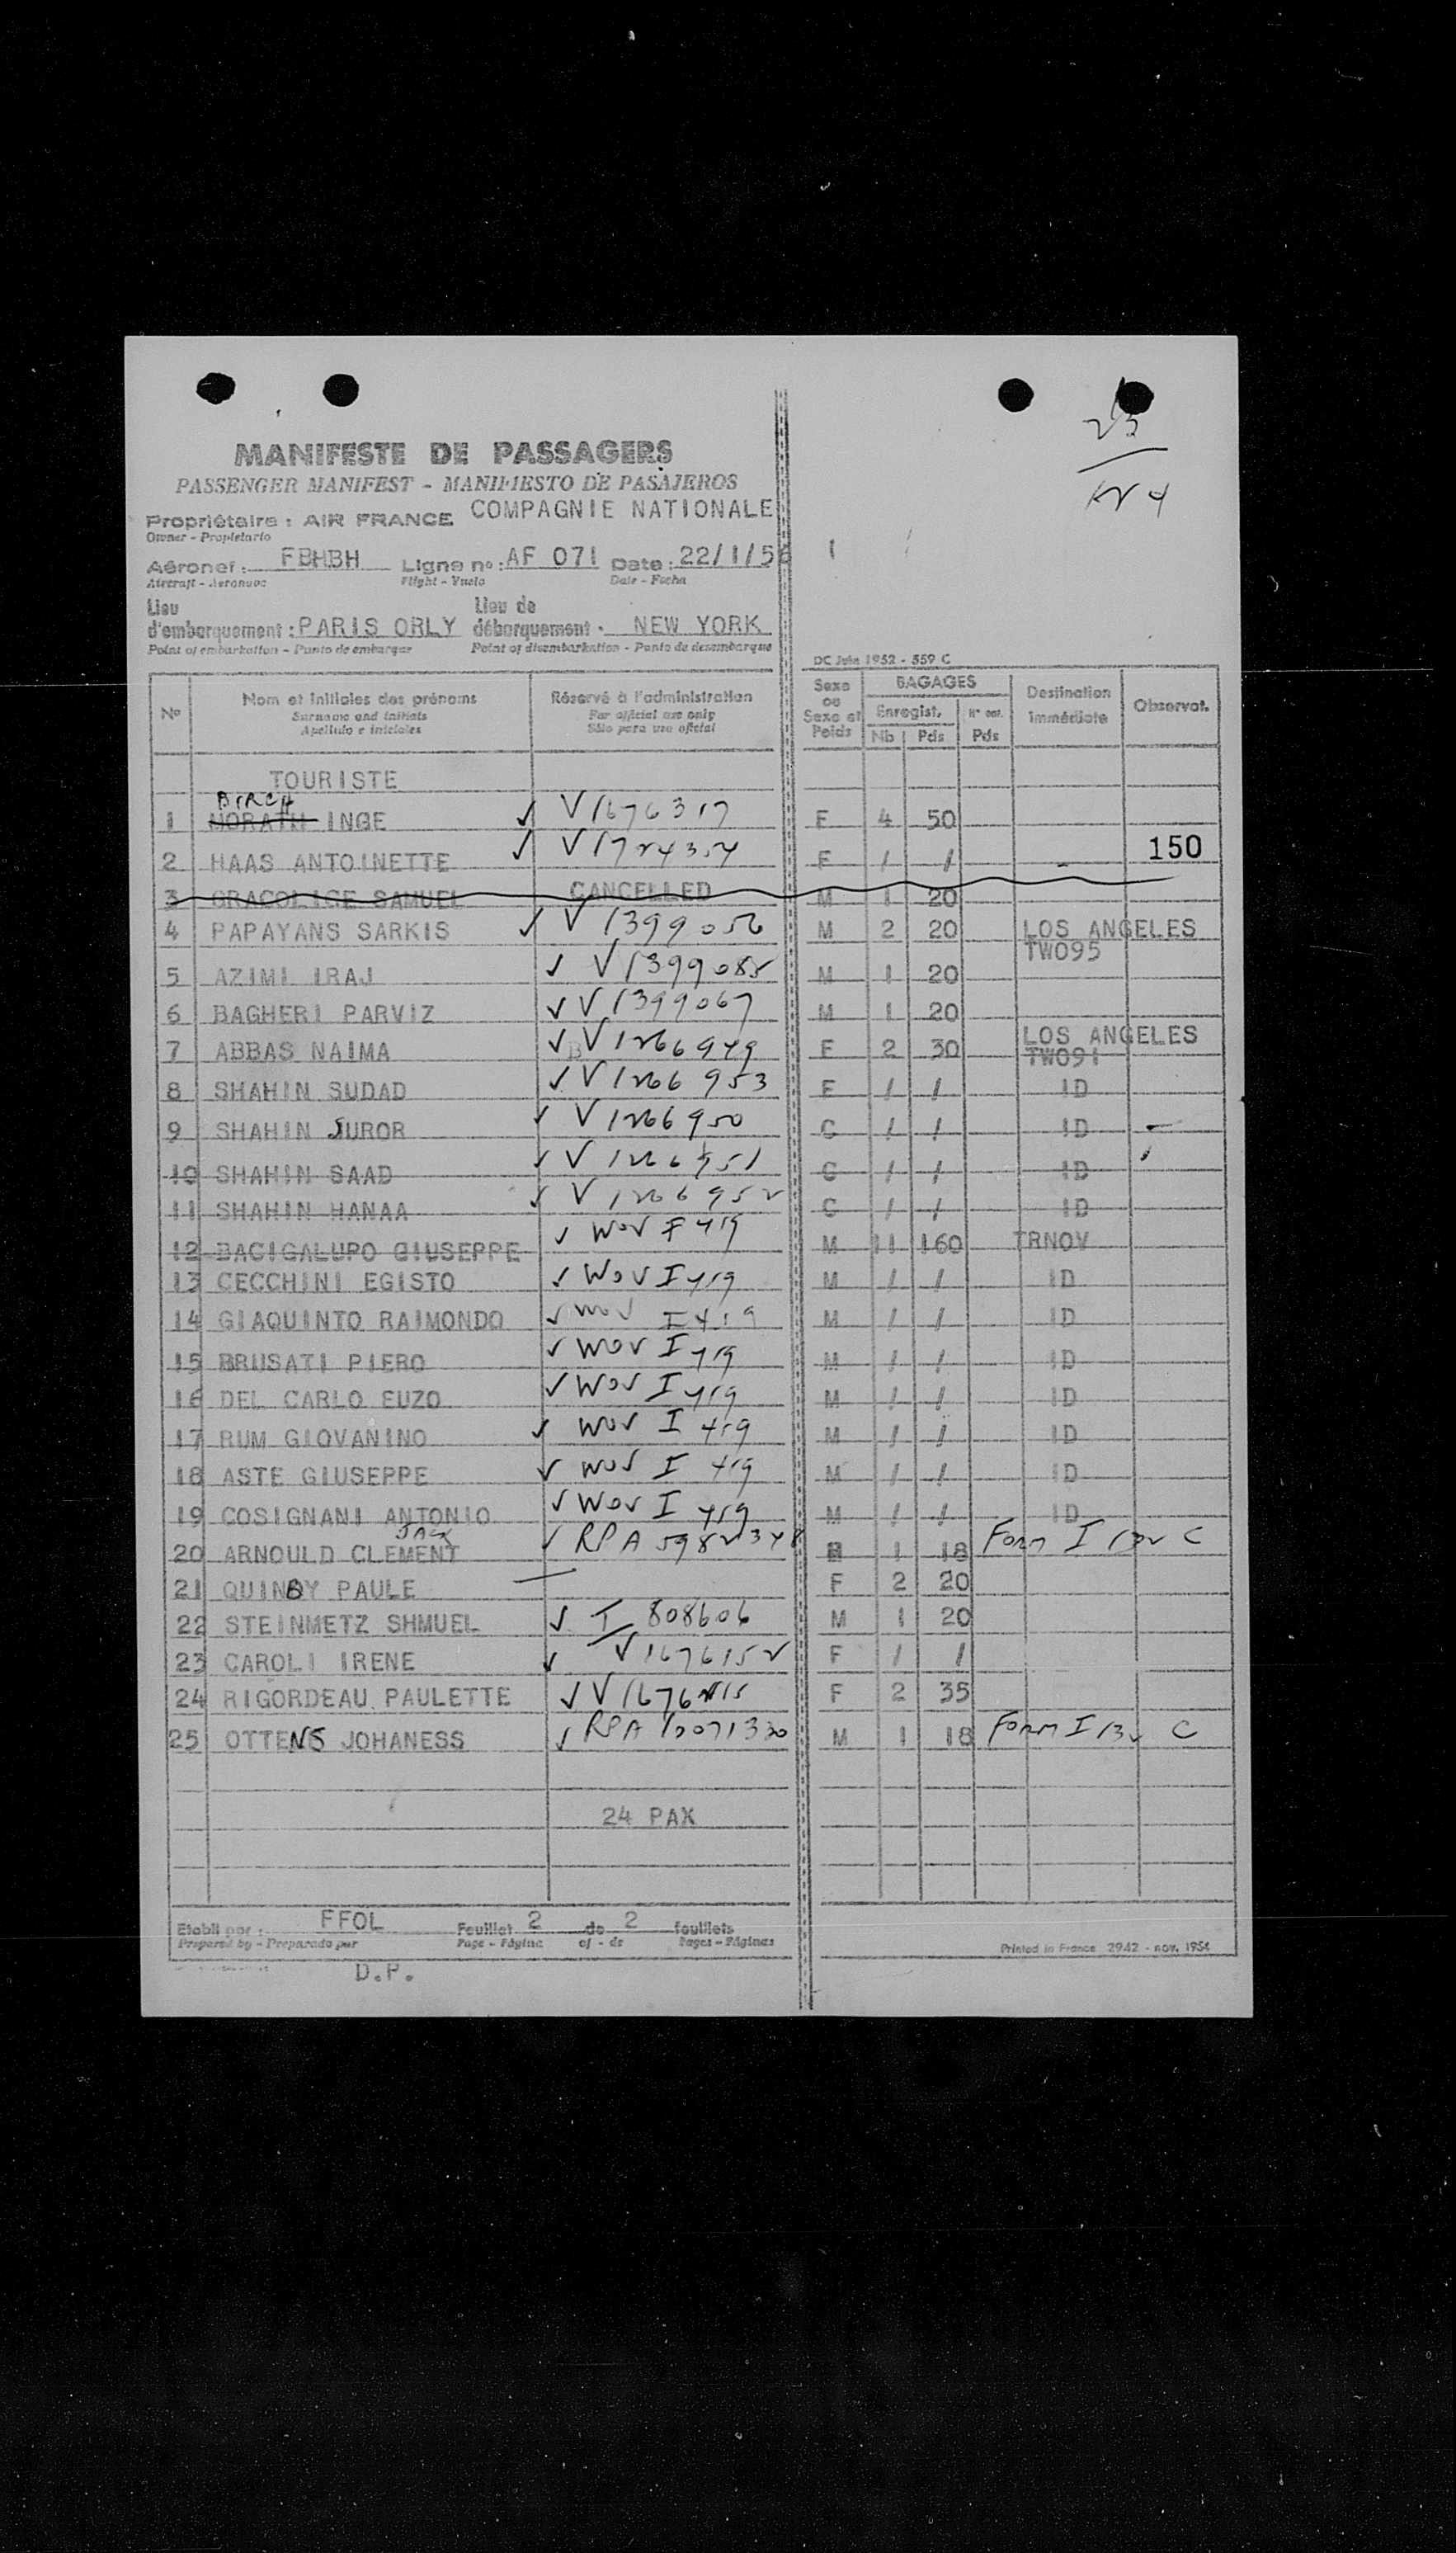 23
KN 4
MANIFESTE DE PASSAGERS
PASSENGER MANIFEST - MANIFIESTO DE PASAJEROS
Propriétaire : AIR FRANCE COMPAGNIE NATIONALE
Owner - Propietario
Aéronef : FBHBH Ligne nº : AF 071 Date : 22/1/56
Aircraft - Aeronave Flight - Vuelo Date - Fecha
Lieu d'embarquement : PARIS ORLY Lieu de débarquement : NEW YORK
Point of embarkation - Punto de embarque Point of disembarkation - Punto de desembarque
DC Juin 1952 - 559 C
Nº Nom et initiales des prénoms Réservé à l'administration Sexe ou Sexe et Poids BAGAGES Destination Immédiate Observat.
Surname and initials For official use only Enregist. Nº
Apellido e iniciales Sólo para uso oficial Nb Pds Pds
TOURISTE
BIRCH
1 MORATH INGE ✓ V1676317 F 4 50
2 HAAS ANTOINETTE ✓ V1724354 F / / - 150
3 GRACOLICE SAMUEL CANCELLED M 1 20
4 PAPAYANS SARKIS ✓ V1399056 M 2 20 LOS ANGELES TW095
5 AZIMI IRAJ ✓ V1399085 M 1 20
6 BAGHERI PARVIZ ✓ V1399067 M 1 20
7 ABBAS NAIMA ✓ V1266949 F 2 30 LOS ANGELES TW091
8 SHAHIN SUDAD ✓ V1266953 F / / ID
9 SHAHIN SUROR ✓ V1266950 C / / ID
10 SHAHIN SAAD ✓ V1266951 C / / ID
11 SHAHIN HANAA ✓ V1266952 C / / ID
12 BACIGALUPO GIUSEPPE ✓ WOV I 419 M 11 160 TRNOV
13 CECCHINI EGISTO ✓ WOV I 419 M / / ID
14 GIAQUINTO RAIMONDO ✓ WOV I 419 M / / ID
15 BRUSATI PIERO ✓ WOV I 419 M / / ID
16 DEL CARLO EUZO ✓ WOV I 419 M / / ID
17 RUM GIOVANINO ✓ WOV I 419 M / / ID
18 ASTE GIUSEPPE ✓ WOV I 419 M / / ID
19 COSIGNANI ANTONIO ✓ WOV I 419 M / / ID
20 ARNOULD CLEMENT ✓ RPA 5982348 1 18 Form I 132 C
21 QUINBY PAULE — F 2 20
22 STEINMETZ SHMUEL ✓ I 808606 M 1 20
23 CAROLI IRENE ✓ V1676152 F / /
24 RIGORDEAU PAULETTE ✓ F 2 35
25 OTTENS JOHANESS ✓ RPA 10071330 M 1 18 Form I 132 C
24 PAX
Etabli par : FFOL Feuillet 2 de 2 feuillets
Prepared by - Preparado por Page - Página of - de Pages - Páginas
Printed in France 2942 - nov. 1954
D.P.